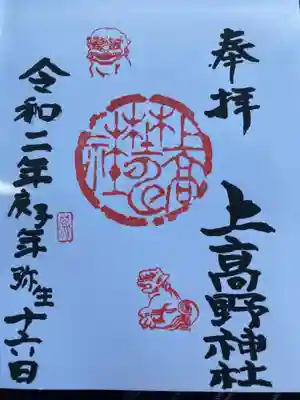 奉拝
上高野神社
令和二年庚子年弥生十六日